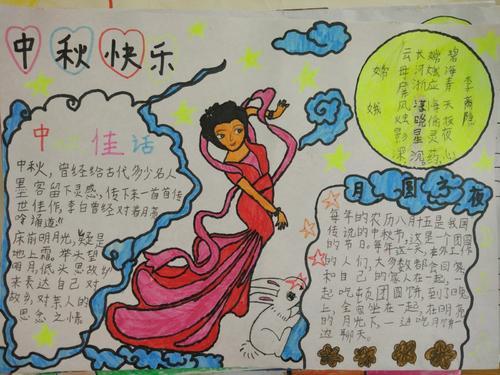 中秋快乐
嫦娥
李商隐
云母屏风烛影深
长河渐落晓星沉
嫦娥应悔偷灵药
碧海青天夜夜心
中 佳话
中秋，曾经给古代多少名人
墨客留下灵感，传下来一首首传
世佳作，李白曾经对着月亮
吟诵道：
床前明月光，疑是
地上霜。举头望
明月，低头思故乡
来表达自己对
故乡，对亲人的
思念之情。
月圆之夜
每年的农历八月十五是我国
传说的中秋节，这是一个团圆
的节日。每年这一天，在外工作
的人们，大多数都会回家
和自己的家人在一起，一
起吃顿团圆饼，到了晚
上，全家坐在一起，在明亮
的月光下，一边吃月饼一
边聊天。